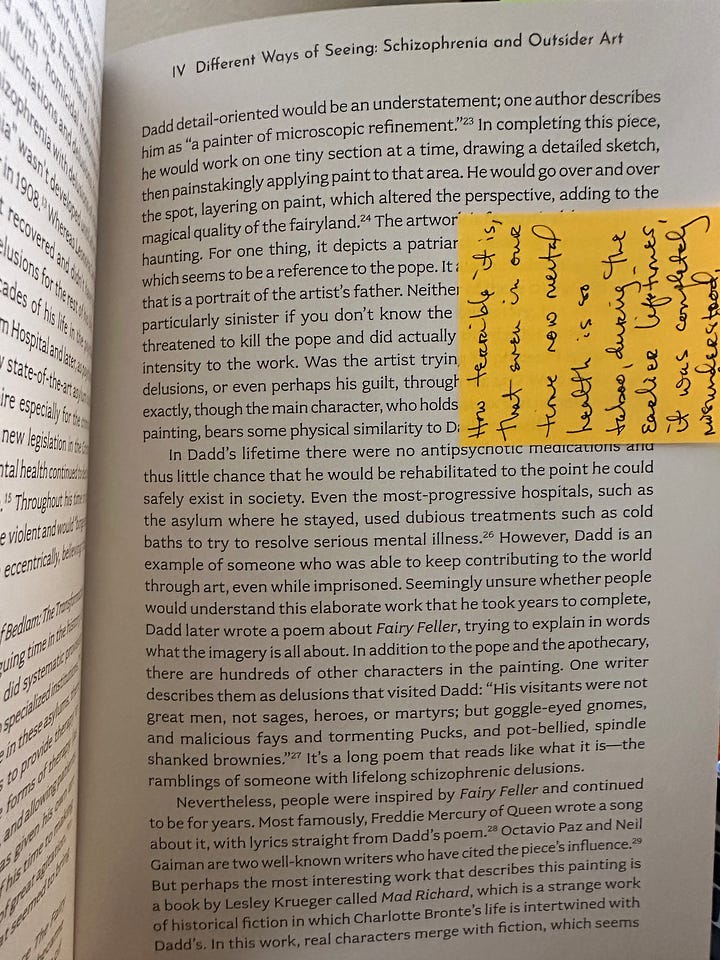 IV Different Ways of Seeing: Schizophrenia and Outsider Art
Dadd detail-oriented would be an understatement; one author describes
him as “a painter of microscopic refinement.”23 In completing this piece,
he would work on one tiny section at a time, drawing a detailed sketch,
then painstakingly applying paint to that area. He would go over and over
the spot, layering on paint, which altered the perspective, adding to the
magical quality of the fairyland.24 The artwor
haunting. For one thing, it depicts a patriar
which seems to be a reference to the pope. It
that is a portrait of the artist’s father. Neither
particularly sinister if you don’t know the
threatened to kill the pope and did actually
intensity to the work. Was the artist tryin
delusions, or even perhaps his guilt, through
exactly, though the main character, who holds
painting, bears some physical similarity to D
In Dadd’s lifetime there were no antipsychotic medications and
thus little chance that he would be rehabilitated to the point he could
safely exist in society. Even the most-progressive hospitals, such as
the asylum where he stayed, used dubious treatments such as cold
baths to try to resolve serious mental illness.26 However, Dadd is an
example of someone who was able to keep contributing to the world
through art, even while imprisoned. Seemingly unsure whether people
would understand this elaborate work that he took years to complete,
Dadd later wrote a poem about Fairy Feller, trying to explain in words
what the imagery is all about. In addition to the pope and the apothecary,
there are hundreds of other characters in the painting. One writer
describes them as delusions that visited Dadd: “His visitants were not
great men, not sages, heroes, or martyrs; but goggle-eyed gnomes,
and malicious fays and tormenting Pucks, and pot-bellied, spindle
shanked brownies.”27 It’s a long poem that reads like what it is—the
ramblings of someone with lifelong schizophrenic delusions.
Nevertheless, people were inspired by Fairy Feller and continued
to be for years. Most famously, Freddie Mercury of Queen wrote a song
about it, with lyrics straight from Dadd’s poem.28 Octavio Paz and Neil
Gaiman are two well-known writers who have cited the piece’s influence.29
But perhaps the most interesting work that describes this painting is
a book by Lesley Krueger called Mad Richard, which is a strange work
of historical fiction in which Charlotte Bronte’s life is intertwined with
Dadd’s. In this work, real characters merge with fiction, which seems
How terrible it is,
that even in our
time now mental
health is so
taboo, during the
earlier lifetimes,
it was completely
misunderstood.